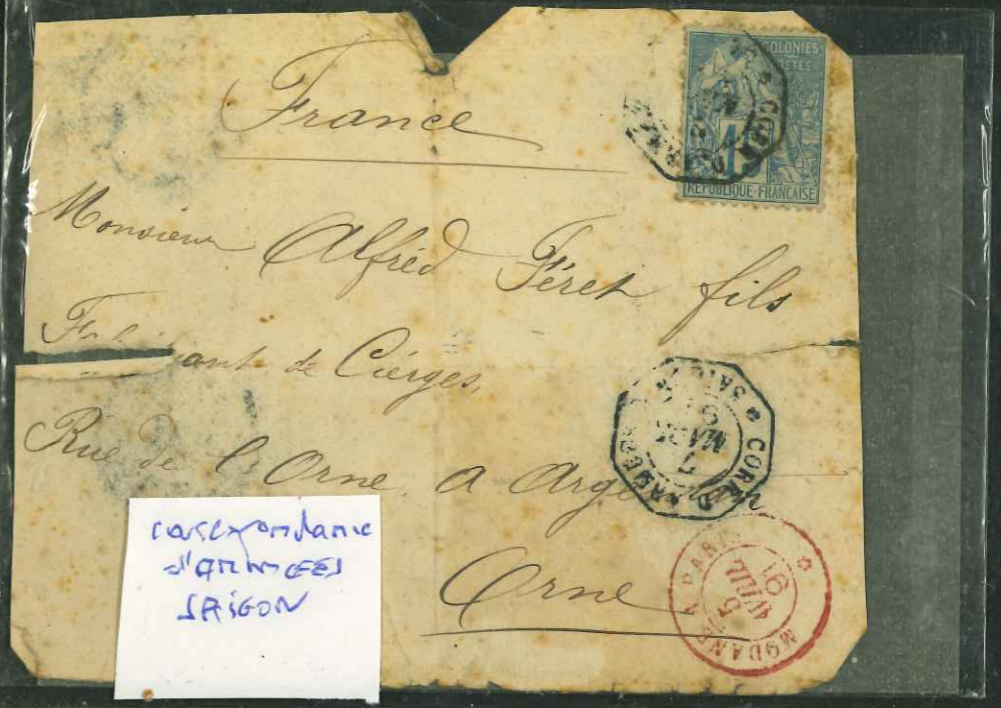 France
COLONIES
POSTES
RÉPUBLIQUE-FRANÇAISE
Monsieur Alfred Féret fils
Fabricant de Cierges,
Rue de l'Orne, a Argentan
Orne
CORR. D. ARMÉES * SAIGON *
7
MARS
91
MODANE A PARIS *
5
AVRIL
91
correspondance
d'ARMÉES
SAIGON